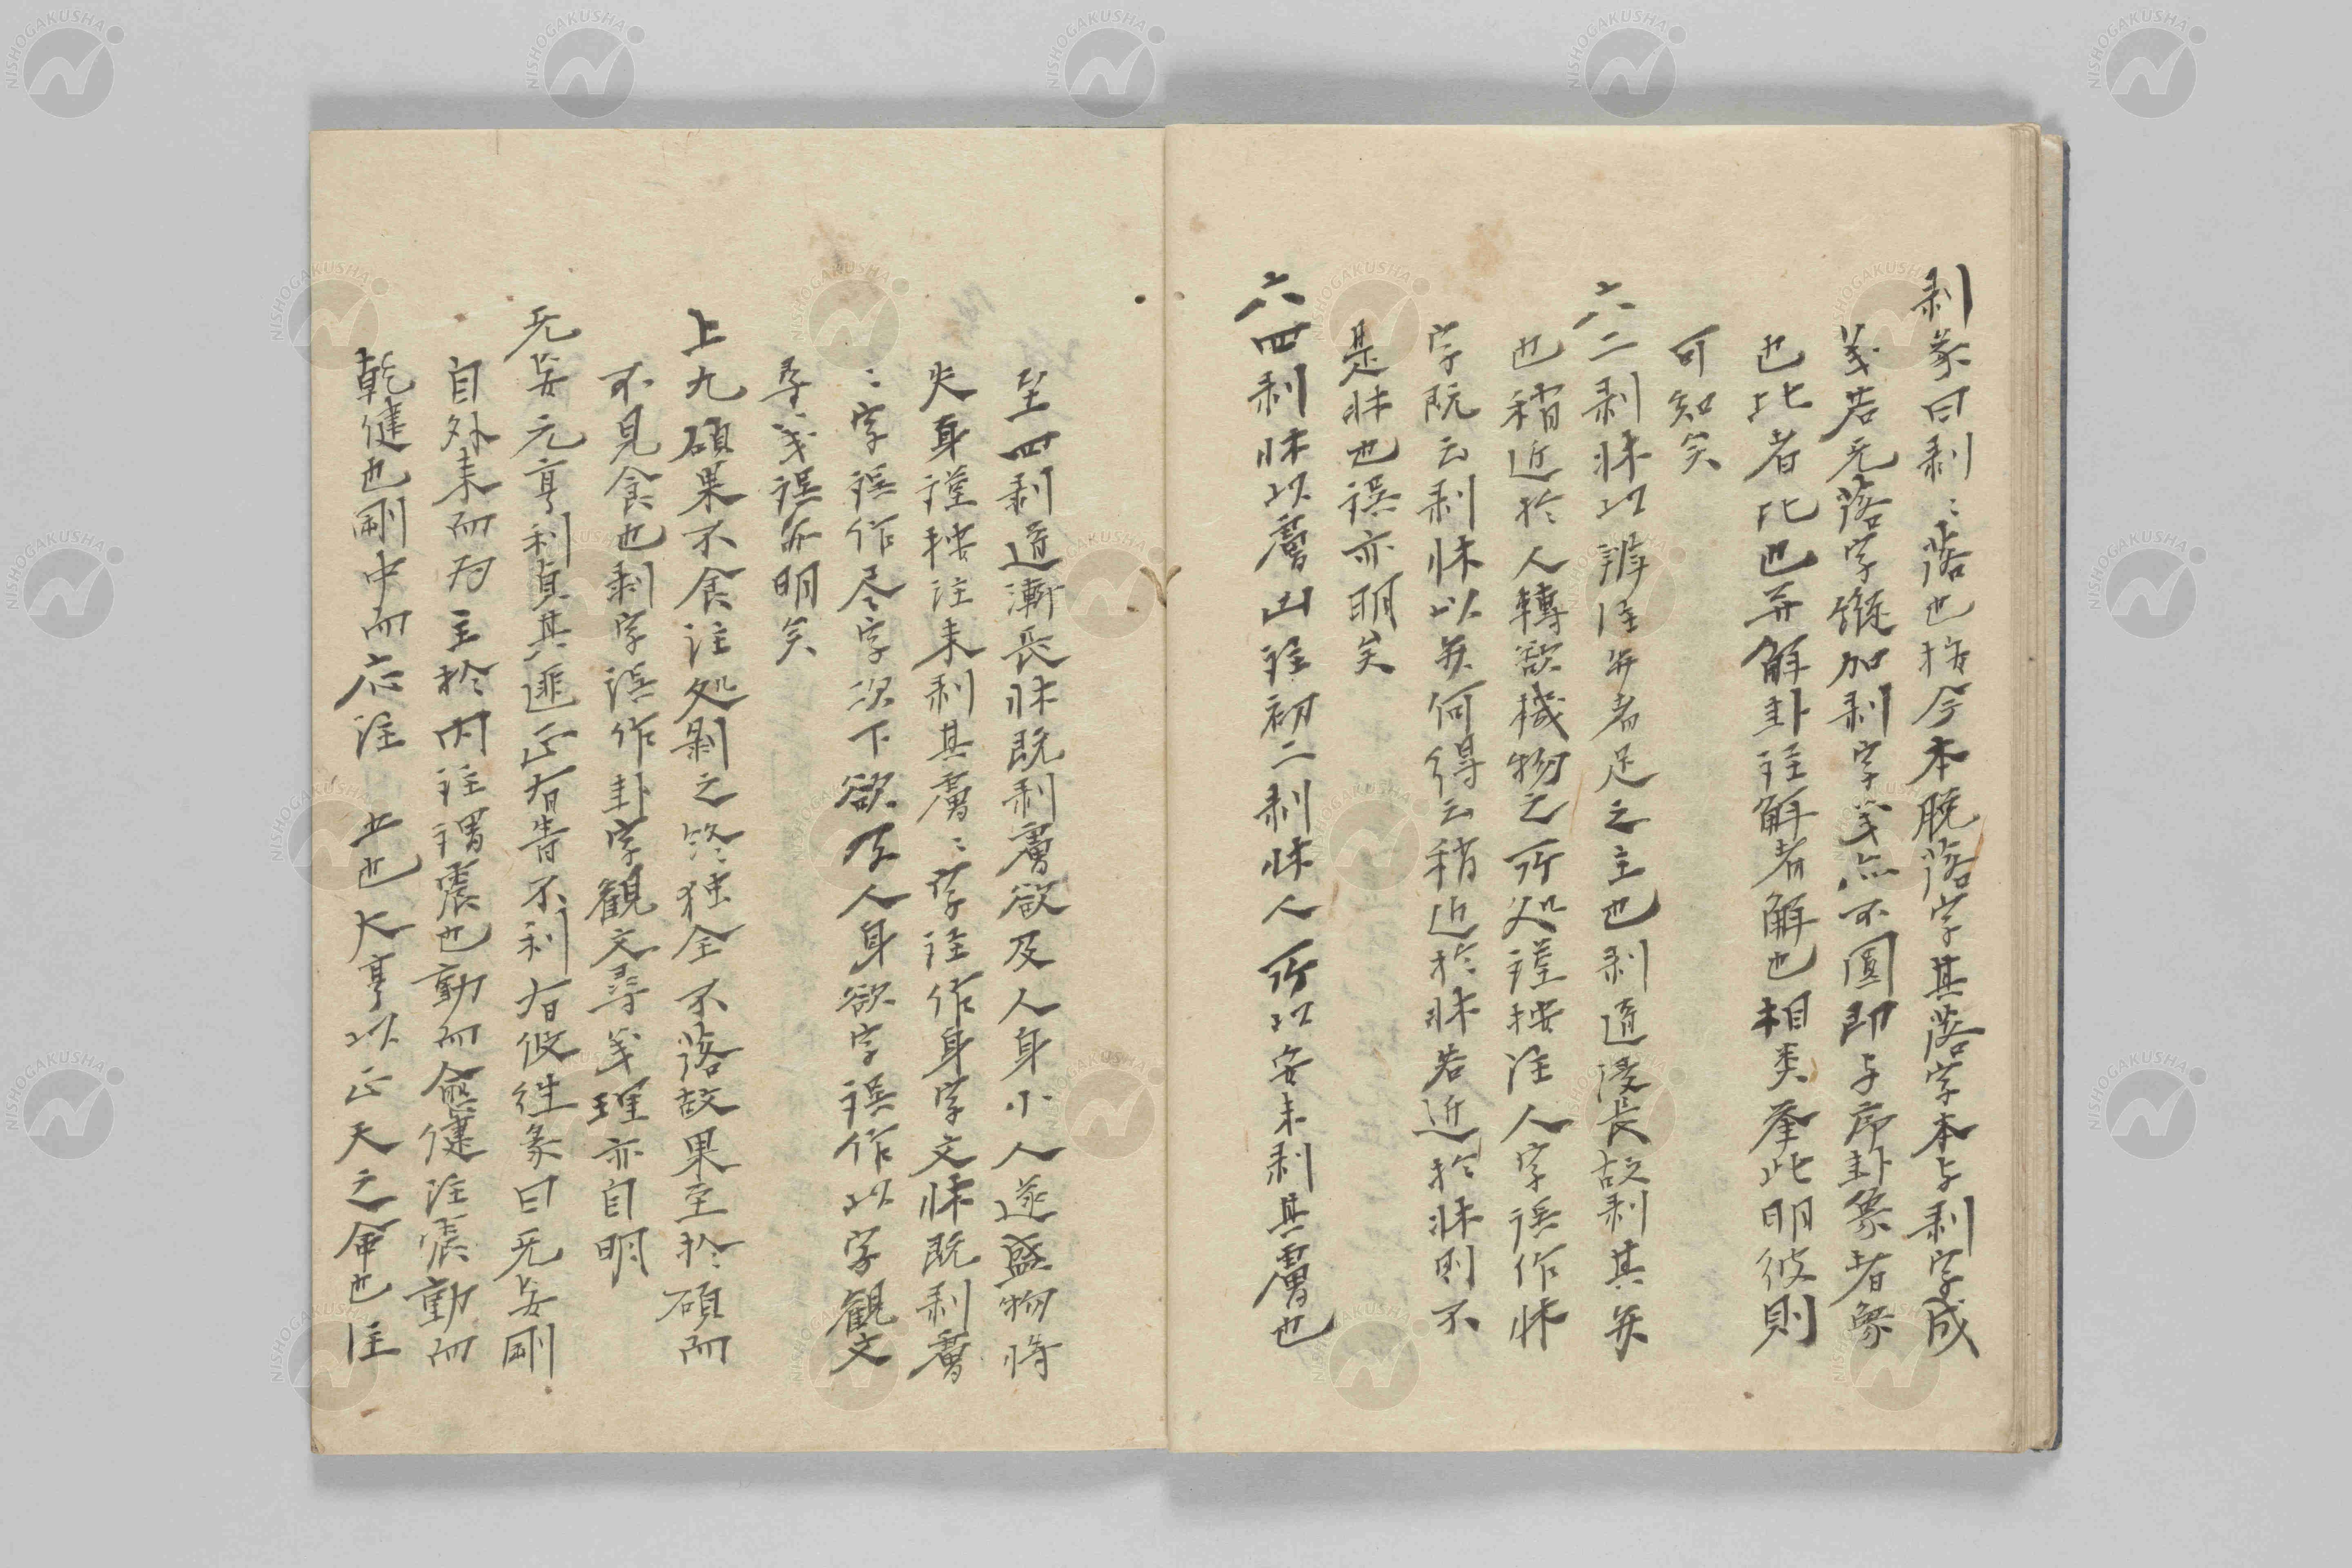 剥彖曰剥〻落也按今本脱落字其落字本与剥字成
義若无落字継加剥字義亦不圓即与序卦蒙者蒙
也比者比也并解卦注解者解也相类举此明彼則
可知矣
六二剥牀以辨注弁者足之主也剥道浸長故剥其弁
也稍近於人轉欲機物之所処謹按注人字誤作牀
字既云剥牀以弁何得云稍近於牀若近於牀則不
是牀也誤亦明矣
六四剥牀以膚凶注初二剥牀人所以安未剥其膚也
至四剥道漸長牀既剥膚欲及人身小人遂盛物将
失身謹按注未剥其膚〻字注作身字文牀既剥膚
〻字誤作尽字次下欲及人身欲字誤作以字観文
尋義誤亦明矣
上九碩果不食注処剥之終独全不落故果至於碩而
不見食也剥字誤作卦字観文尋義理亦自明
无妄元亨利貞其匪正有眚不利有攸往彖曰无妄剛
自外来而為主於内注謂震也動而愈健注震動而
乾健也剛中而応注 五也大亨以正天之命也注
NISHOGAKUSHA